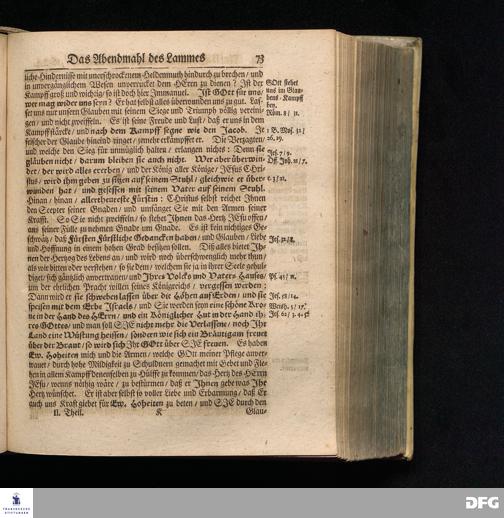 Das Abendmahl des Lammes 73
liche Hindernisse mit unerschrocknem Heldenmuth hindurch zu brechen / und
in unvergänglichem Wesen unverrücket dem HErrn zu dienen? Ist der
Kampff groß und wichtig / so ist doch hier Immanuel. Ist GOtt für uns /
wer mag wider uns seyn? Er hat selbst alles überwunden uns zu gut. Las-
set uns nur unsern Glauben mit seinem Siege und Triumph völlig vereini-
gen / und nicht zweiffeln. Es ist seine Freude und Lust / daß er uns in dem
Kampff stärcke / und nach dem Kampff segne wie den Jacob. Je
frischer der Glaube hinein dringet / je mehr erkämpffet er. Die Verzagten /
und welche den Sieg für unmüglich halten / erlangen nichts: Denn sie
gläuben nicht / darum bleiben sie auch nicht. Wer aber überwin-
det / der wird alles ererben / und der König aller Könige / JEsus Chri-
stus / wird ihm geben zu sitzen auf seinem Stuhl / gleichwie er über-
wunden hat / und gesessen mit seinem Vater auf seinem Stuhl.
Hinan / hinan / allertheureste Fürstin: Christus selbst reichet Ihnen
den Scepter seiner Gnaden / und umfänget Sie mit den Armen seiner
Krafft. So Sie nicht zweiffeln / so stehet Ihnen das Hertz JEsu offen /
aus seiner Fülle zu nehmen Gnade um Gnade. Es ist kein nichtiges Ge-
schwätz / daß Fürsten Fürstliche Gedancken haben / und Glauben / Liebe
und Hoffnung in einem hohen Grad besitzen sollen. Diß alles bietet Ih-
nen der Hertzog des Lebens an / und wird noch überschwenglich mehr thun /
als wir bitten oder verstehen / so sie dem / welchem sie ja in ihrer Seele gehul-
diget / sich gäntzlich anvertrauen / und Ihres Volcks und Vaters Hauses /
um der ehrlichen Pracht willen seines Königreichs / vergessen werden:
Dann wird er sie schweben lassen über die Höhen auf Erden / und sie
speisen mit dem Erbe Israels / und Sie werden seyn eine schöne Kro-
ne in der Hand des HErrn / und ein Königlicher Hut in der Hand ih-
res GOttes / und man soll SIE nicht mehr die Verlassene / noch Ihr
Land eine Wüstung heissen / sondern wie sich ein Bräutigam freuet
über der Braut / so wird sich Ihr GOtt über SIE freuen. Es haben
Ew. Hoheiten mich und die Armen / welche GOtt meiner Pflege anver-
trauet / durch hohe Mildigkeit zu Schuldnern gemachet mit Gebet und Fle-
hen in allem Kampff Denenselben zu Hülffe zu kommen / das Hertz des HErrn
JEsu / wenns nöthig wäre / zu bestürmen / daß er Ihnen gebe was Ihr
Hertz wünschet. Er ist aber selbst so voller Liebe und Erbarmung / daß Er
auch uns Krafft giebet für Ew. Hoheiten zu beten / und SIE durch den
II. Theil. K Glau-
GOtt stehet
uns im Glau-
bens-Kampff
bey.
Röm. 8 / 31.
1 B. Mos. 32 /
26. 29.
Jes. 7 / 9.
Off. Joh. 21 / 7.
c. 3 / 21.
Jes. 32 / 8.
Ps. 45 / 11.
Jes. 58 / 14.
Jes. 62 / 3. 4. 5.
FRANCKESCHE
STIFTUNGEN
DFG